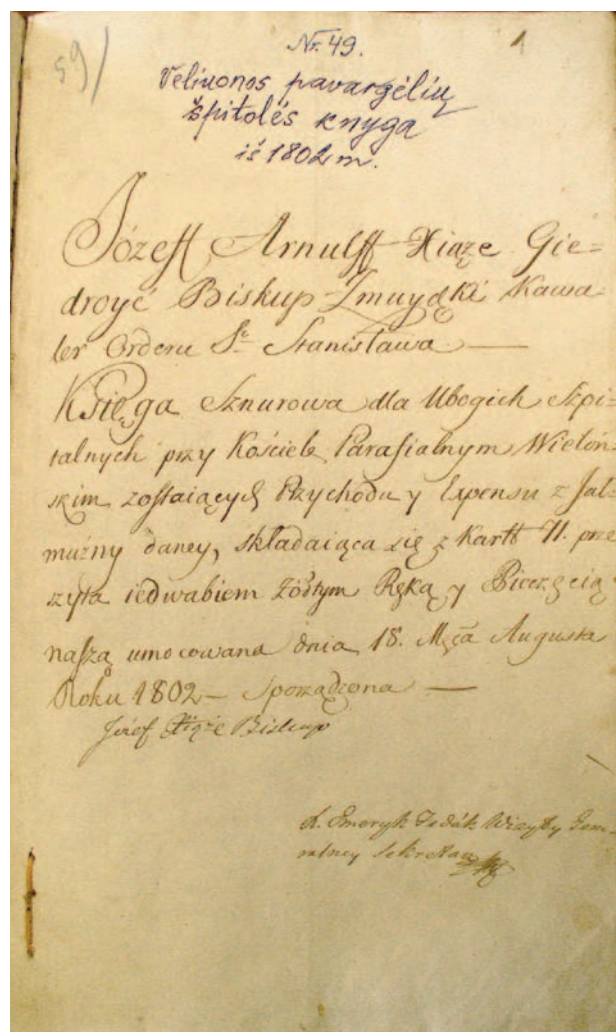 59/
1
Nr. 49.
Veliuonos pavargėlių
špitolės knyga
iš 1802 m.
Józeff Arnulff Xiąże Gie=
droyć Biskup Zmuydzki Kawa=
ler Orderu S. Stanisława —
Księga Sznurowa dla Ubogich Szpi=
talnych przy Kościele Parafialnym Wielon=
skim zostaiących Przychodu y Expensu z Jał=
mużny daney, składaiąca się z Kartt 11. prze
szyta iedwabiem żółtym Ręką y Pieczęcią
naszą umocowana dnia 18. Mca Augusta
Roku 1802 — Sporządzona —
Józef Xiąże Biskup
X. Emeryk Wizyty Gene=
ralney Sekretarz